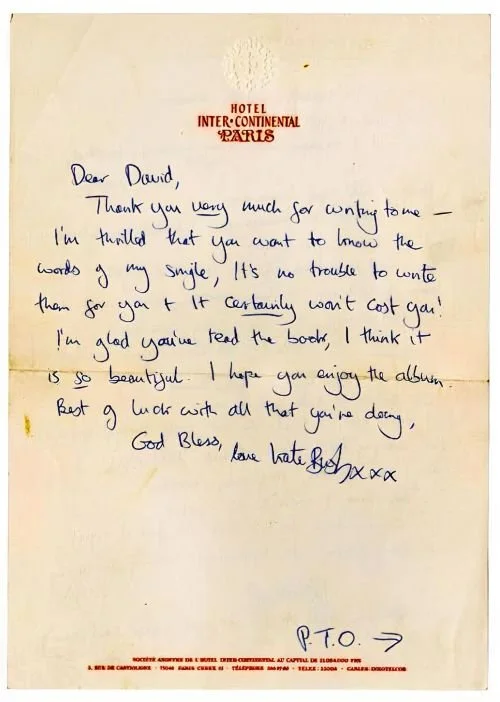 HOTEL
INTER•CONTINENTAL
PARIS
Dear David,
Thank you very much for writing to me —
I'm thrilled that you want to know the
words of my single, It's no trouble to write
them for you + It certainly won't cost you!
I'm glad you've read the book, I think it
is so beautiful. I hope you enjoy the album.
Best of luck with all that you're doing,
God Bless, love Kate Bush xxx
P.T.O. →
SOCIÉTÉ ANONYME DE L'HOTEL INTER-CONTINENTAL AU CAPITAL DE
3, RUE DE CASTIGLIONE - 75040 PARIS CEDEX 01 - TÉLÉPHONE - TELEX : - CABLES: INHOTELCOR